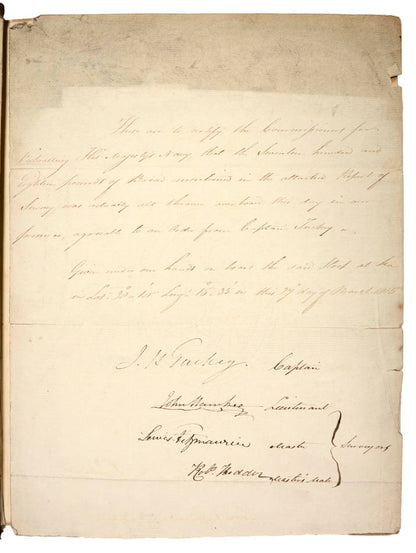 These are to certify the Commissioners for
Victualling His Majesty's Navy that the Seventeen hundred and
Eighteen pounds of Bread mentioned in the attached Report of
Survey was actually all thrown overboard this day in our
presence, agreeable to an Order from Captain Tuckey
Given under our hands on board the said Sloop at Sea
in Lat. Long. this day of March
J. K. Tuckey. Captain
John Hawkey Lieutenant
Lewis Fitzmaurice Master
Rob. Hodder Master's Mate
Surveyors